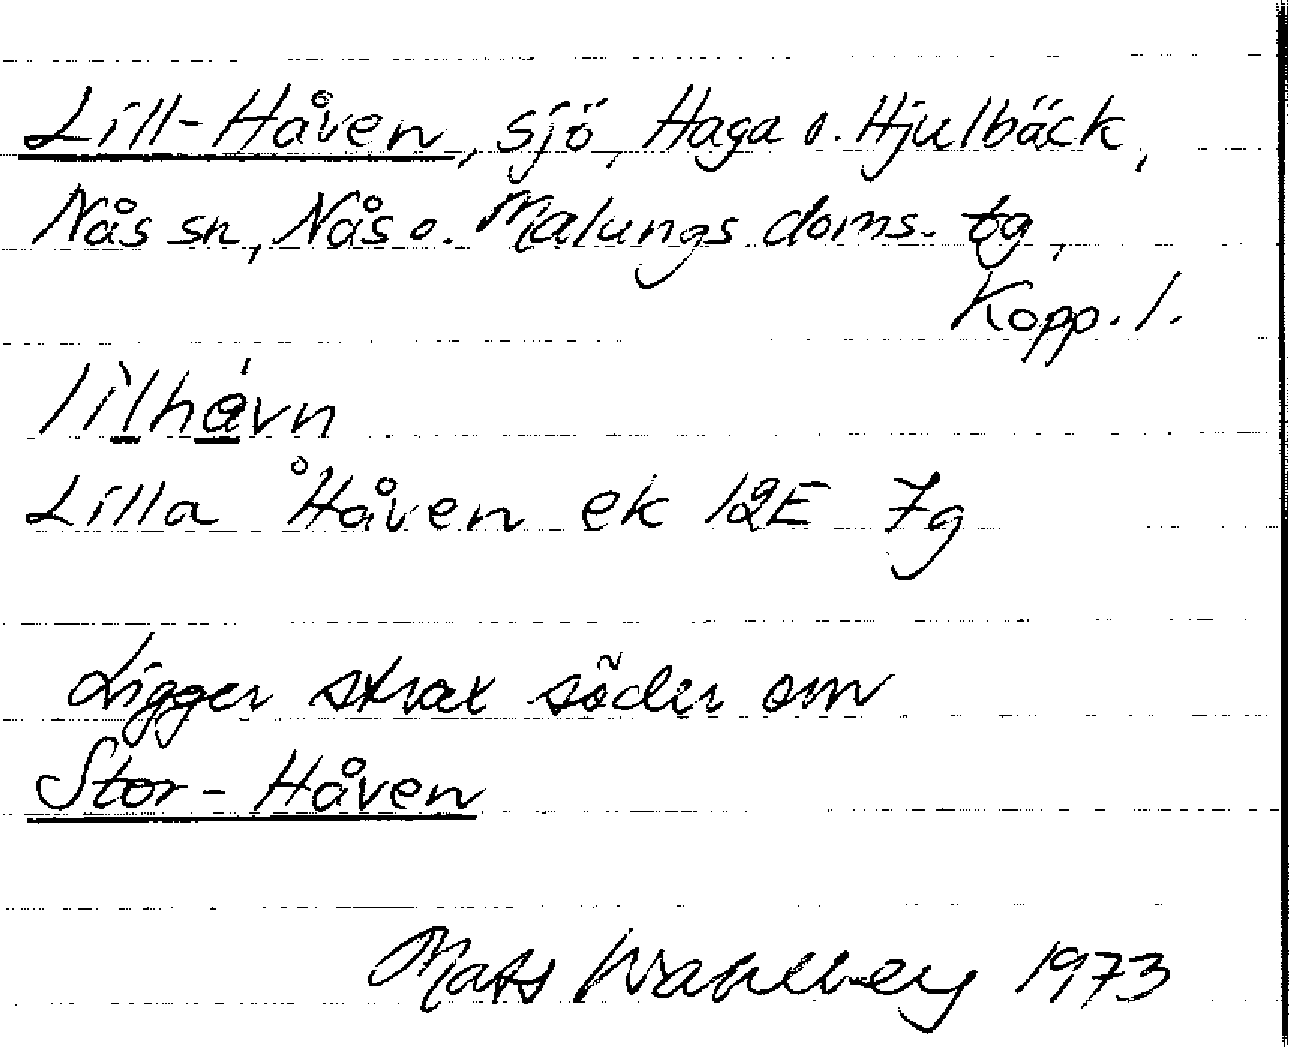 Lill-Håven, sjö, Haga o. Hjulbäck,
Nås sn, Nås o. Malungs doms. tg,
Kopp. l.
lìlhávn
Lilla Håven ek 12E 7g
Ligger strax söder om
Stor-Håven
Mats Wahlberg 1973